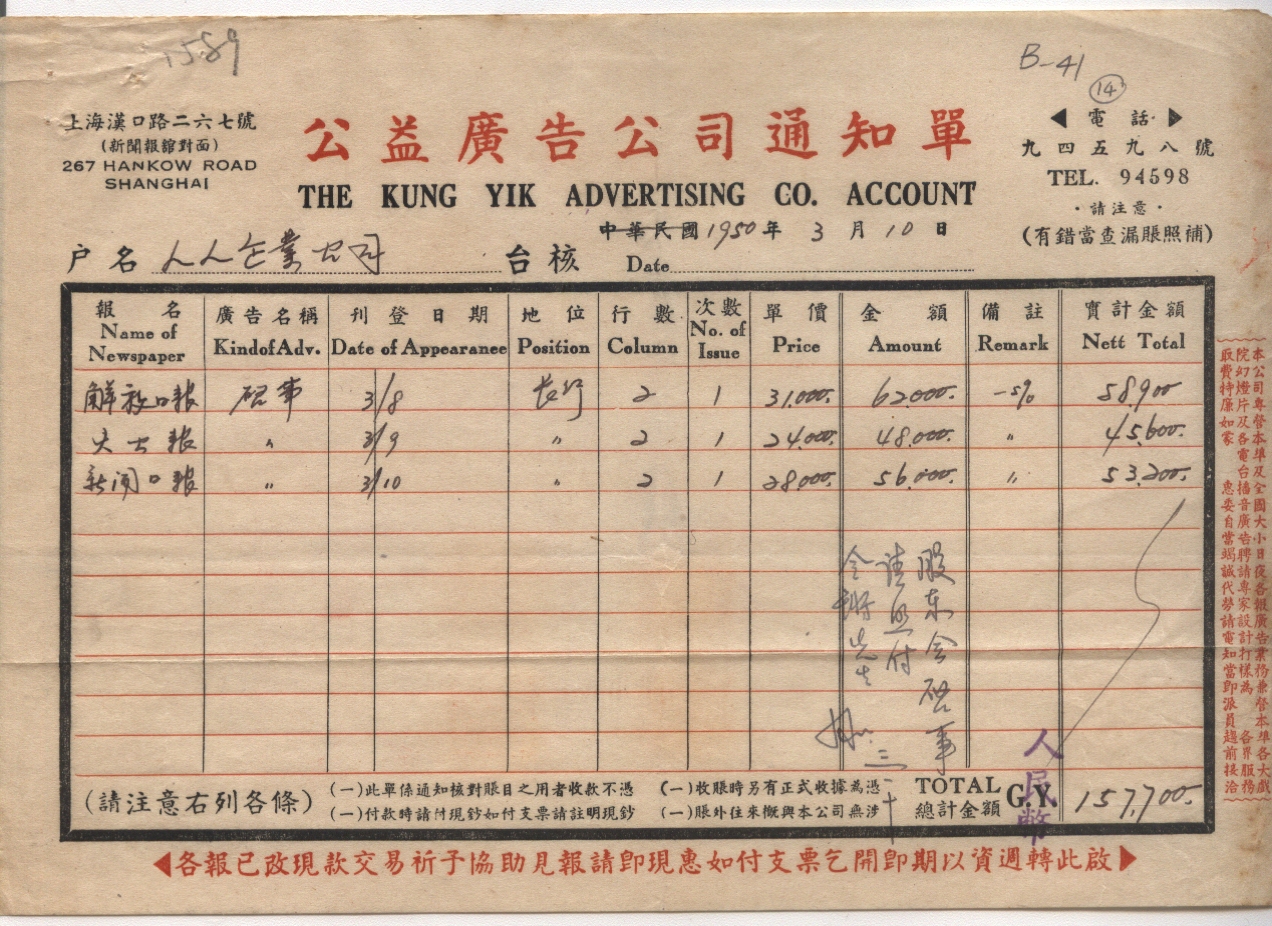 1589
B-41
14
上海漢口路二六七號
(新聞報館對面)
267 HANKOW ROAD
SHANGHAI
公益廣告公司通知單
THE KUNG YIK ADVERTISING CO. ACCOUNT
◀ 電話 ▶
九四五九八號
TEL. 94598
·請注意·
(有錯當查漏賬照補)
中華民國1950年 3月10日
户名 人人企業公司 台核 Date
報名 廣告名稱 刊登日期 地位 行數 次數 單價 金額 備註 實計金額
Name of Newspaper Kind of Adv. Date of Appearanee Position Column No. of Issue Price Amount Remark Nett Total
解放日報 啓事 3/8 長行 2 1 31,000. 62,000. -5% 58,900
大公報 〃 3/9 〃 2 1 24,000. 48,000. 〃 45,600.
新闻日報 〃 3/10 〃 2 1 28,000. 56,000. 〃 53,200.
股东会啓事
请照付
先生
三 十
(請注意右列各條)
(一)此單係通知核對賬目之用者收款不憑
(一)付款時請付現鈔如付支票請註明現鈔
(一)收賬時另有正式收據為憑
(一)賬外往來概與本公司無涉
TOTAL G.Y. 157,700.
總計金額
人民幣
◀各報已改現款交易祈予協助見報請卽現惠如付支票乞開卽期以資週轉此啟▶
本公司專營本埠及全國大小日夜各報廣告業務兼營本埠各大戲
院幻燈片及各電台播音廣告聘請專家設計打樣為 各界服務
取費特廉如蒙 惠委自當竭誠代勞請電知當卽派員趨前接洽